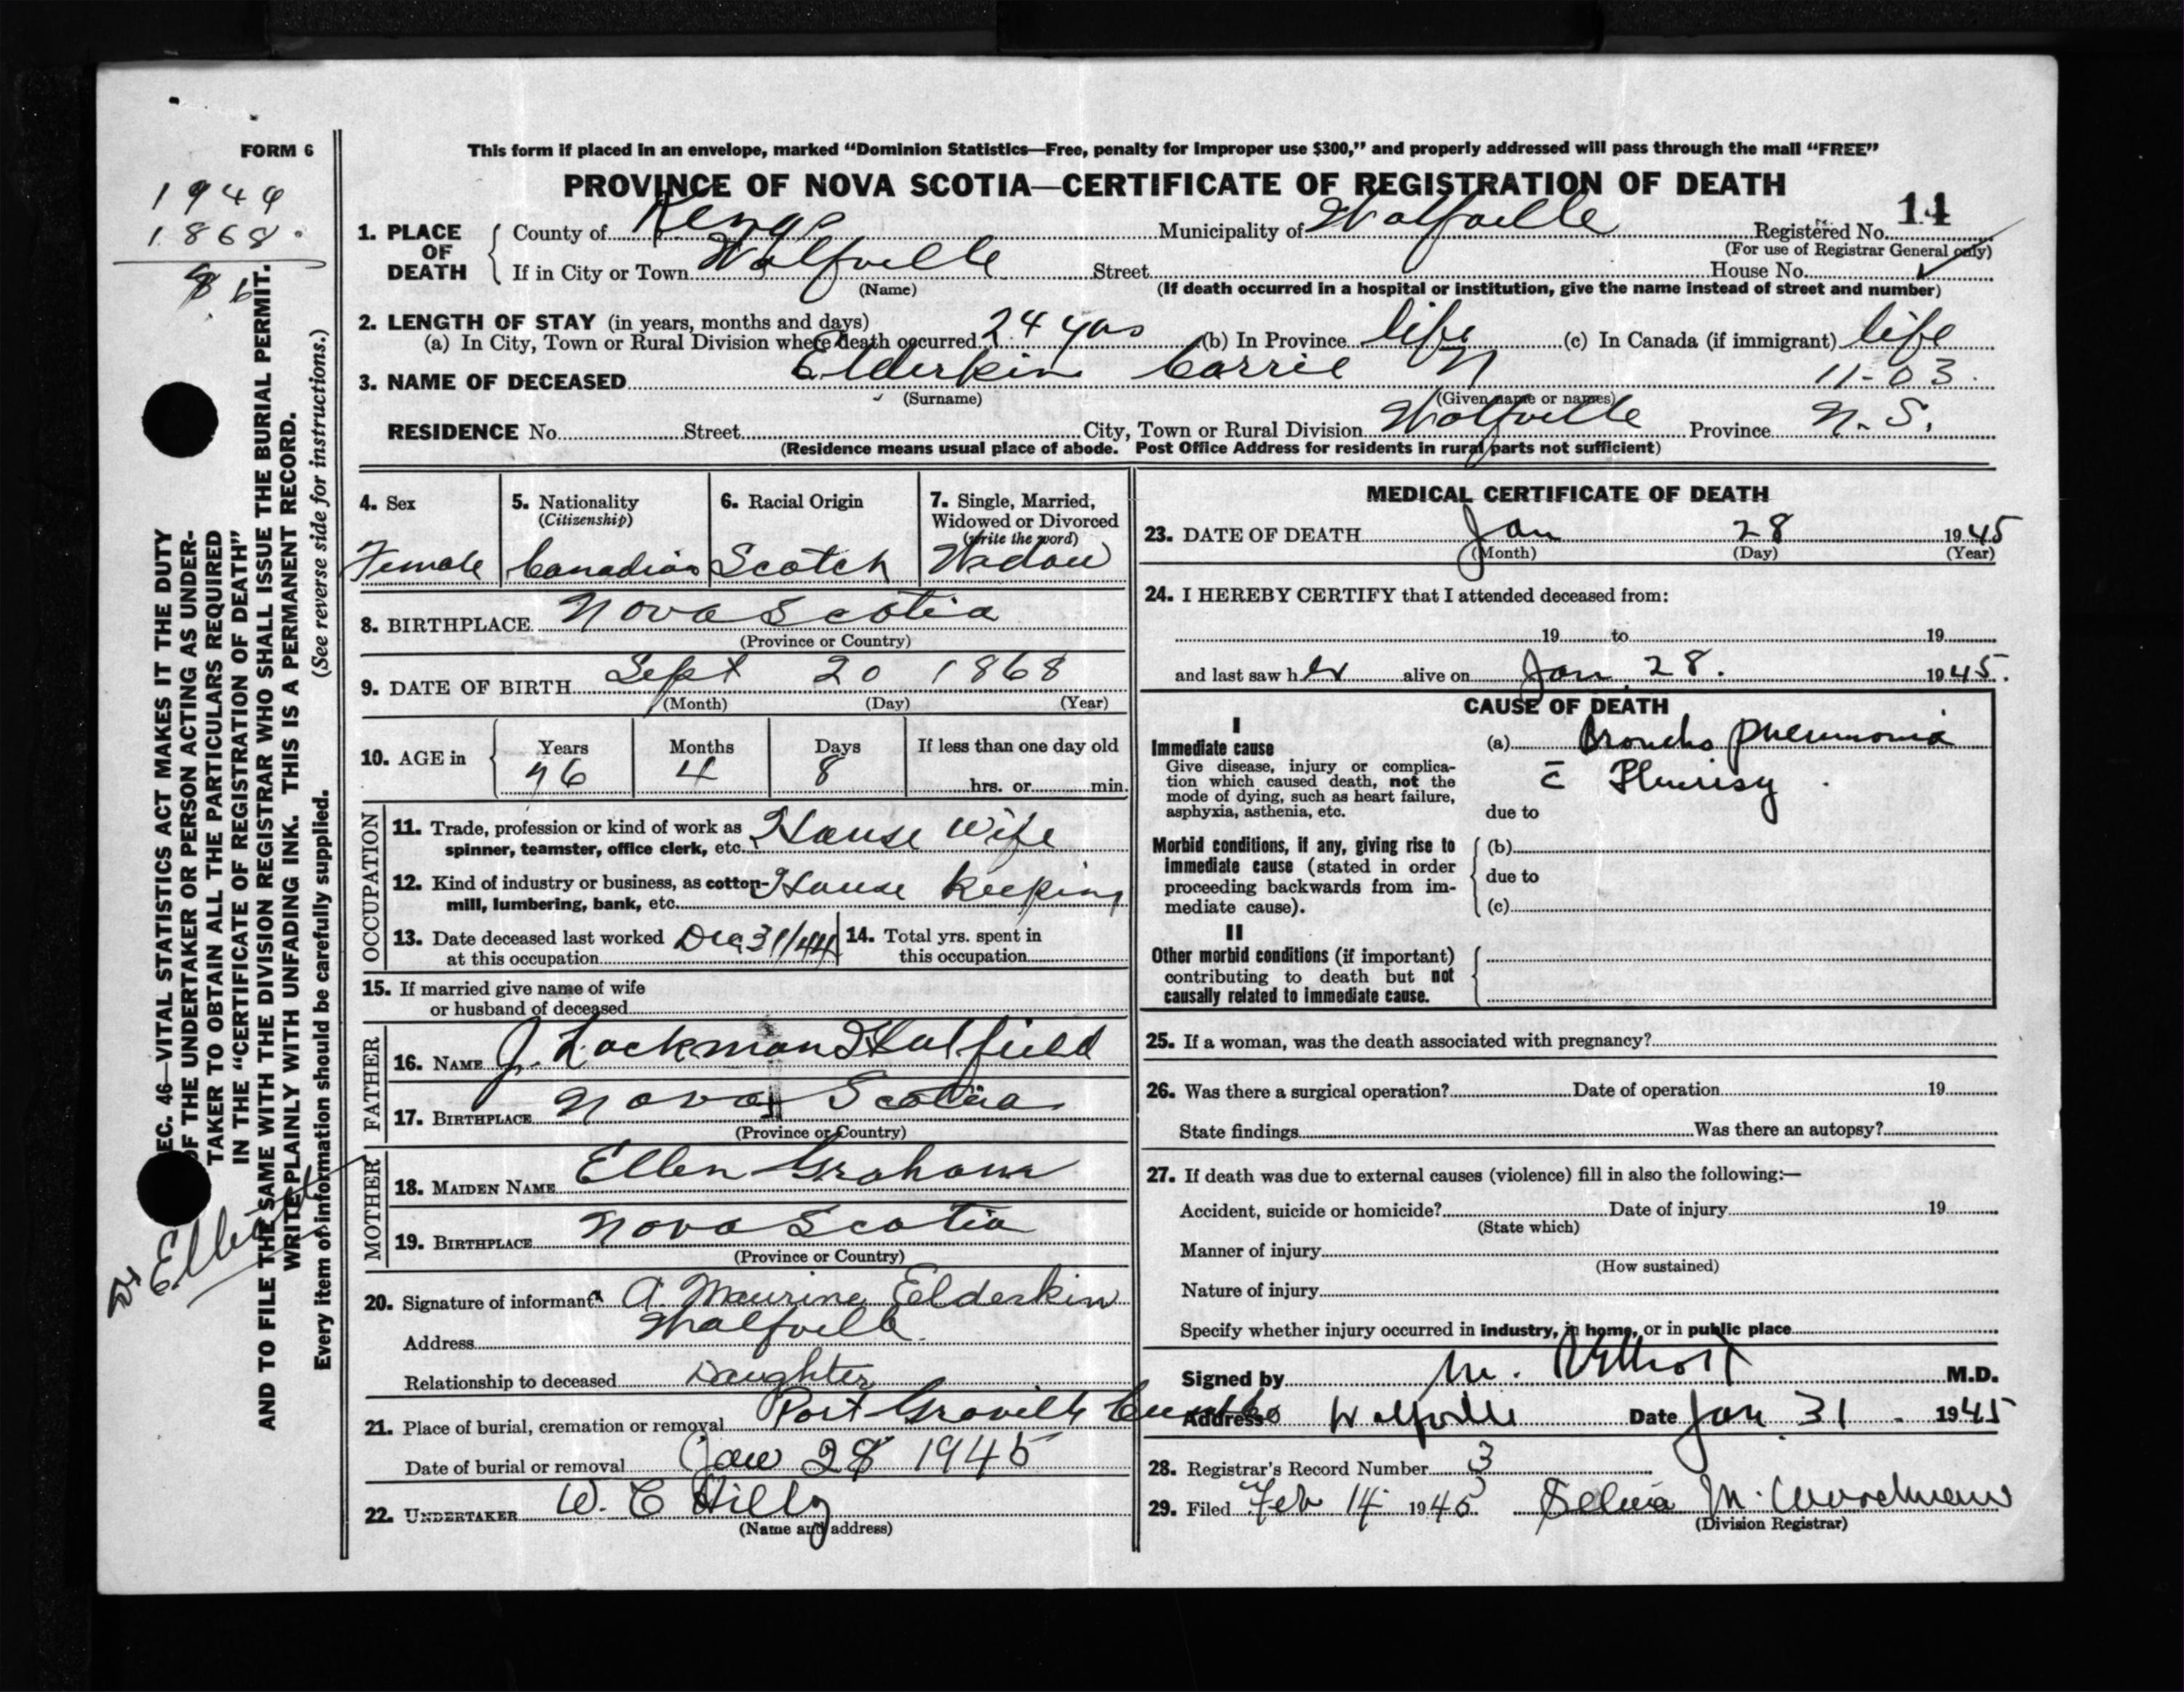 FORM 6
1944
1868
86
This form if placed in an envelope, marked “Dominion Statistics—Free, penalty for improper use $300,” and properly addressed will pass through the mail “FREE”
PROVINCE OF NOVA SCOTIA—CERTIFICATE OF REGISTRATION OF DEATH
1. PLACE OF DEATH
County of Kings Municipality of Wolfville Registered No. 14
(For use of Registrar General only)
If in City or Town Wolfville Street House No.
(Name) (If death occurred in a hospital or institution, give the name instead of street and number)
2. LENGTH OF STAY (in years, months and days)
(a) In City, Town or Rural Division where death occurred 24 yrs (b) In Province life (c) In Canada (if immigrant) life
3. NAME OF DECEASED Elderkin Carrie N 11-03.
(Surname) (Given name or names)
RESIDENCE No. Street City, Town or Rural Division Wolfville Province N.S.
(Residence means usual place of abode. Post Office Address for residents in rural parts not sufficient)
4. Sex
Female
5. Nationality
(Citizenship)
Canadian
6. Racial Origin
Scotch
7. Single, Married,
Widowed or Divorced
(write the word)
Widow
8. BIRTHPLACE Nova Scotia
(Province or Country)
9. DATE OF BIRTH Sept 20 1868
(Month) (Day) (Year)
10. AGE in
Years Months Days If less than one day old
76 4 8 hrs. or min.
OCCUPATION
11. Trade, profession or kind of work as
spinner, teamster, office clerk, etc. House Wife
12. Kind of industry or business, as cotton-
mill, lumbering, bank, etc. House keeping
13. Date deceased last worked
at this occupation Dec 31/44
14. Total yrs. spent in
this occupation
15. If married give name of wife
or husband of deceased
FATHER
16. NAME J. Lockman Hatfield
17. BIRTHPLACE Nova Scotia
(Province or Country)
MOTHER
18. MAIDEN NAME Ellen Graham
19. BIRTHPLACE Nova Scotia
(Province or Country)
20. Signature of informant A. Maurine Elderkin
Address Wolfville
Relationship to deceased Daughter
21. Place of burial, cremation or removal Port Greville
Date of burial or removal Jan 28 1945
22. UNDERTAKER W. C
(Name and address)
MEDICAL CERTIFICATE OF DEATH
23. DATE OF DEATH Jan 28 1945
(Month) (Day) (Year)
24. I HEREBY CERTIFY that I attended deceased from:
19 to 19
and last saw her alive on Jan. 28. 1945.
CAUSE OF DEATH
I
Immediate cause
Give disease, injury or complica-
tion which caused death, not the
mode of dying, such as heart failure,
asphyxia, asthenia, etc.
(a) Broncho pneumonia
c̄ Pleurisy
due to
Morbid conditions, if any, giving rise to
immediate cause (stated in order
proceeding backwards from im-
mediate cause).
(b)
due to
(c)
II
Other morbid conditions (if important)
contributing to death but not
causally related to immediate cause.
25. If a woman, was the death associated with pregnancy?
26. Was there a surgical operation? Date of operation 19
State findings Was there an autopsy?
27. If death was due to external causes (violence) fill in also the following:—
Accident, suicide or homicide? Date of injury 19
(State which)
Manner of injury
(How sustained)
Nature of injury
Specify whether injury occurred in industry, in home, or in public place
Signed by M. R. Elliott M.D.
Address Wolfville Date Jan 31. 1945
28. Registrar's Record Number 3
29. Filed Feb 14 1945 M. Woodman
(Division Registrar)
SEC. 46—VITAL STATISTICS ACT MAKES IT THE DUTY
OF THE UNDERTAKER OR PERSON ACTING AS UNDER-
TAKER TO OBTAIN ALL THE PARTICULARS REQUIRED
IN THE “CERTIFICATE OF REGISTRATION OF DEATH”
AND TO FILE THE SAME WITH THE DIVISION REGISTRAR WHO SHALL ISSUE THE BURIAL PERMIT.
WRITE PLAINLY WITH UNFADING INK. THIS IS A PERMANENT RECORD.
Every item of information should be carefully supplied. (See reverse side for instructions.)
Dr Elliott